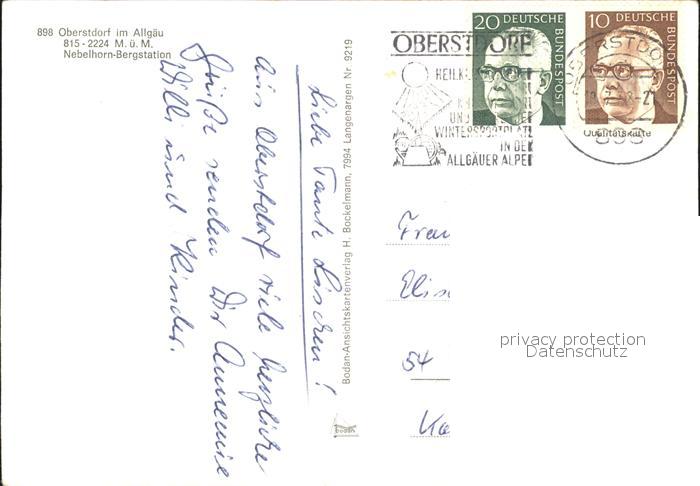 898 Oberstdorf im Allgäu
815 - 2224 M. ü. M.
Nebelhorn-Bergstation
Liebe Tante Lischen!
Aus Oberstdorf viele herzliche
Grüße senden Dir Annemie
Willi und Kinder.
Bodan-Ansichtskartenverlag H. Bockelmann, 7994 Langenargen Nr. 9219
bodan
20 DEUTSCHE BUNDESPOST
10 DEUTSCHE BUNDESPOST
OBERSTDORF
HEILK
UN
WINTERSPORTPLATZ
IN DEN
ALLGÄUER ALPEN
OBERSTDORF
Qualitätskarte
898
Frau
Elis
54
Ko
privacy protection
Datenschutz